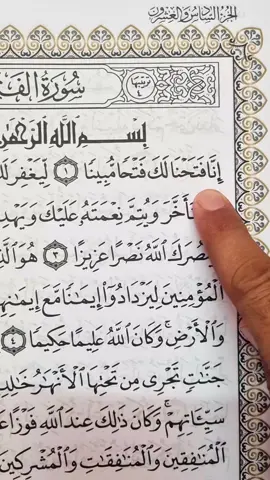 الجزء السادس والعشرون
سُورَةُ الفَ
بِسْمِ اللَّهِ الرَّحْمَٰنِ
إِنَّا فَتَحْنَا لَكَ فَتْحًا مُّبِينًا ١ لِّيَغْفِرَ لَكَ
تَأَخَّرَ وَيُتِمَّ نِعْمَتَهُ عَلَيْكَ وَيَهْدِ
يَنصُرَكَ اللَّهُ نَصْرًا عَزِيزًا ٣ هُوَ الَّ
الْمُؤْمِنِينَ لِيَزْدَادُوا إِيمَانًا مَّعَ إِيمَانِهِ
وَالْأَرْضِ ۚ وَكَانَ اللَّهُ عَلِيمًا حَكِيمًا ٤
جَنَّاتٍ تَجْرِي مِن تَحْتِهَا الْأَنْهَارُ خَالِدِ
سَيِّئَاتِهِمْ ۚ وَكَانَ ذَٰلِكَ عِندَ اللَّهِ فَوْزًا عَ
الْمُنَافِقِينَ وَالْمُنَافِقَاتِ وَالْمُشْرِكِينَ